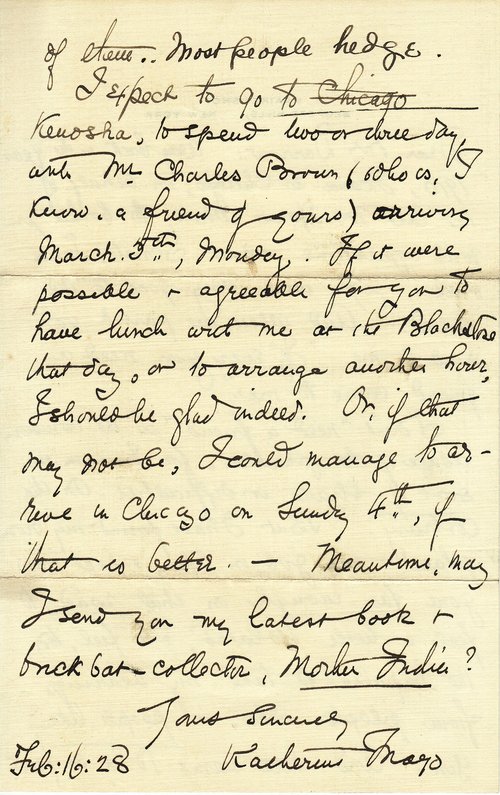 of them.. Most people hedge.
I expect to go to Chicago
Kenosha, to spend two or three days
with Mr Charles Brown (who is, I
know, a friend of yours) arriving
March 5th, Monday. If it were
possible & agreeable for you to
have lunch with me at the Blackstone
that day, or to arrange another hour,
I should be glad indeed. Or, if that
may not be, I could manage to ar-
rive in Chicago on Sunday 4th, if
that is better. — Meantime, may
I send you my latest book &
brickbat-collector, Mother India?
Yours sincerely
Feb: 16: 28 Katherine Mayo